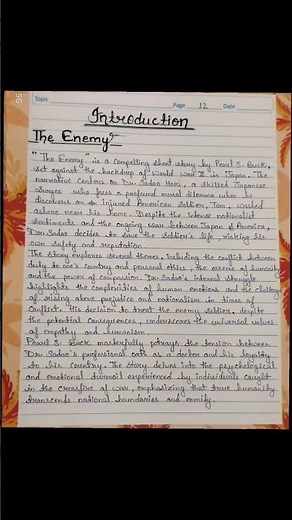 Topic
Page 12 Date
Introduction
The Enemy
"The Enemy" is a compelling short story by Pearl S. Buck,
set against the backdrop of World War II in Japan. The
narrative centers on Dr. Sadao Hoki, a skilled Japanese
surgeon who faces a profound moral dilemma when he
discovers an injured American soldier, Tom, washed
ashore near his home. Despite the intense nationalist
sentiments and the ongoing war between Japan & America,
Dr. Sadao decides to save the soldier's life, risking his
own safety and reputation.
The story explores several themes, including the conflict between
duty to one's country and personal ethics, the essence of humanity
and the power of compassion. Dr. Sadao's internal struggle
highlights the complexities of human emotions and the challenge
of rising above prejudice and nationalism in times of
conflict. His decision to treat the enemy soldier, despite
the potential consequences, underscores the universal values
of empathy and humanism.
Pearl S. Buck masterfully potrays the tension between
Dr. Sadao's professional oath as a doctor and his loyalty
to his country. The story delves into the psychological
and emotional turmoil experienced by individuals caught
in the crossfire of war, emphasizing that true humanity
transcends national boundaries and enmity.